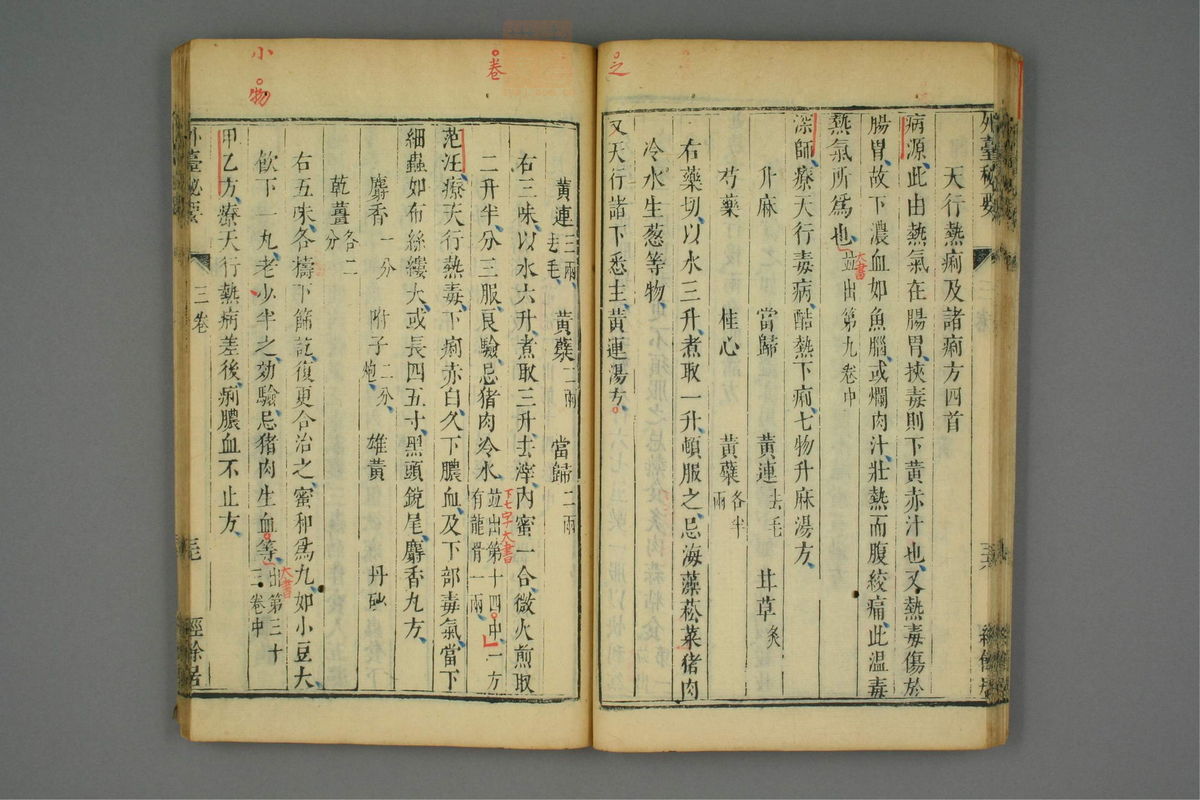 天行熱痢及諸痢方四首
病源、此由熱氣在腸胃、挾毒則下黃赤汁也、又熱毒傷於
腸胃、故下濃血如魚腦、或爛肉汁、壯熱而腹絞痛、此溫毒
熱氣所爲也、並出第九卷中
大書
深師、療天行毒病、酷熱下痢、七物升麻湯方、
升麻 當歸 黃連去毛 甘草炙
芍藥 桂心 黃蘗各半兩
右藥切、以水三升煮取一升、頓服之、忌海藻菘菜猪肉
冷水生葱等物、
又天行諸下悉主、黃連湯方、
之
卷
黃連三兩、去毛、 黃蘗二兩 當歸二兩
右三味、以水六升、煮取三升、去滓、內蜜一合、微火煎取
二升半、分三服、良驗、忌猪肉冷水、並出第十四中、一方有龍骨一兩、
下七字大書
范汪、療天行熱毒、下痢赤白、久下膿血、及下部毒氣、當下
細蟲如布絲縷大、或長四五寸、黑頭銳尾、麝香丸方、
麝香一分 附子二分、炮、 雄黃 丹砂
乾薑各二分
右五味、各擣下篩訖、復更合治之、蜜和爲丸、如小豆大、
飲下一丸、老少半之、効驗、忌猪肉生血等、出第三十三卷中
大書
甲乙方、療天行熱病差後、痢膿血不止方、
小
物
外臺秘要 三卷 經餘居